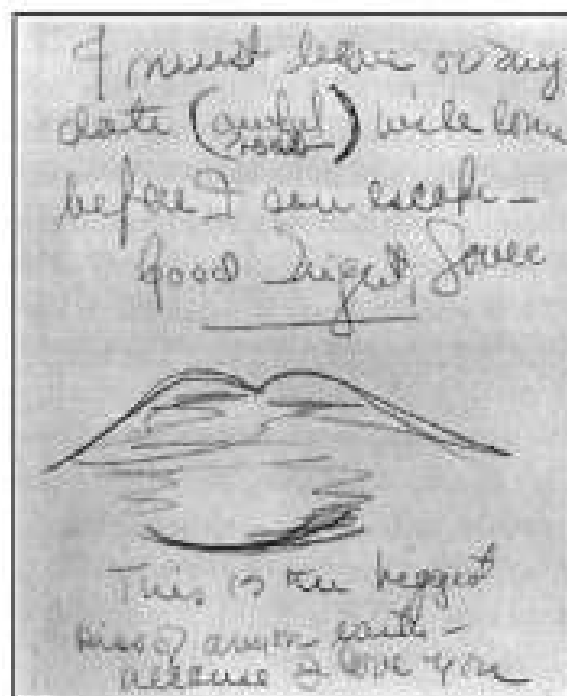 I must leave or my
date (awful) will come
before I can escape —
Good Night, Lover
This is the biggest
kiss of any on earth —
because I love you